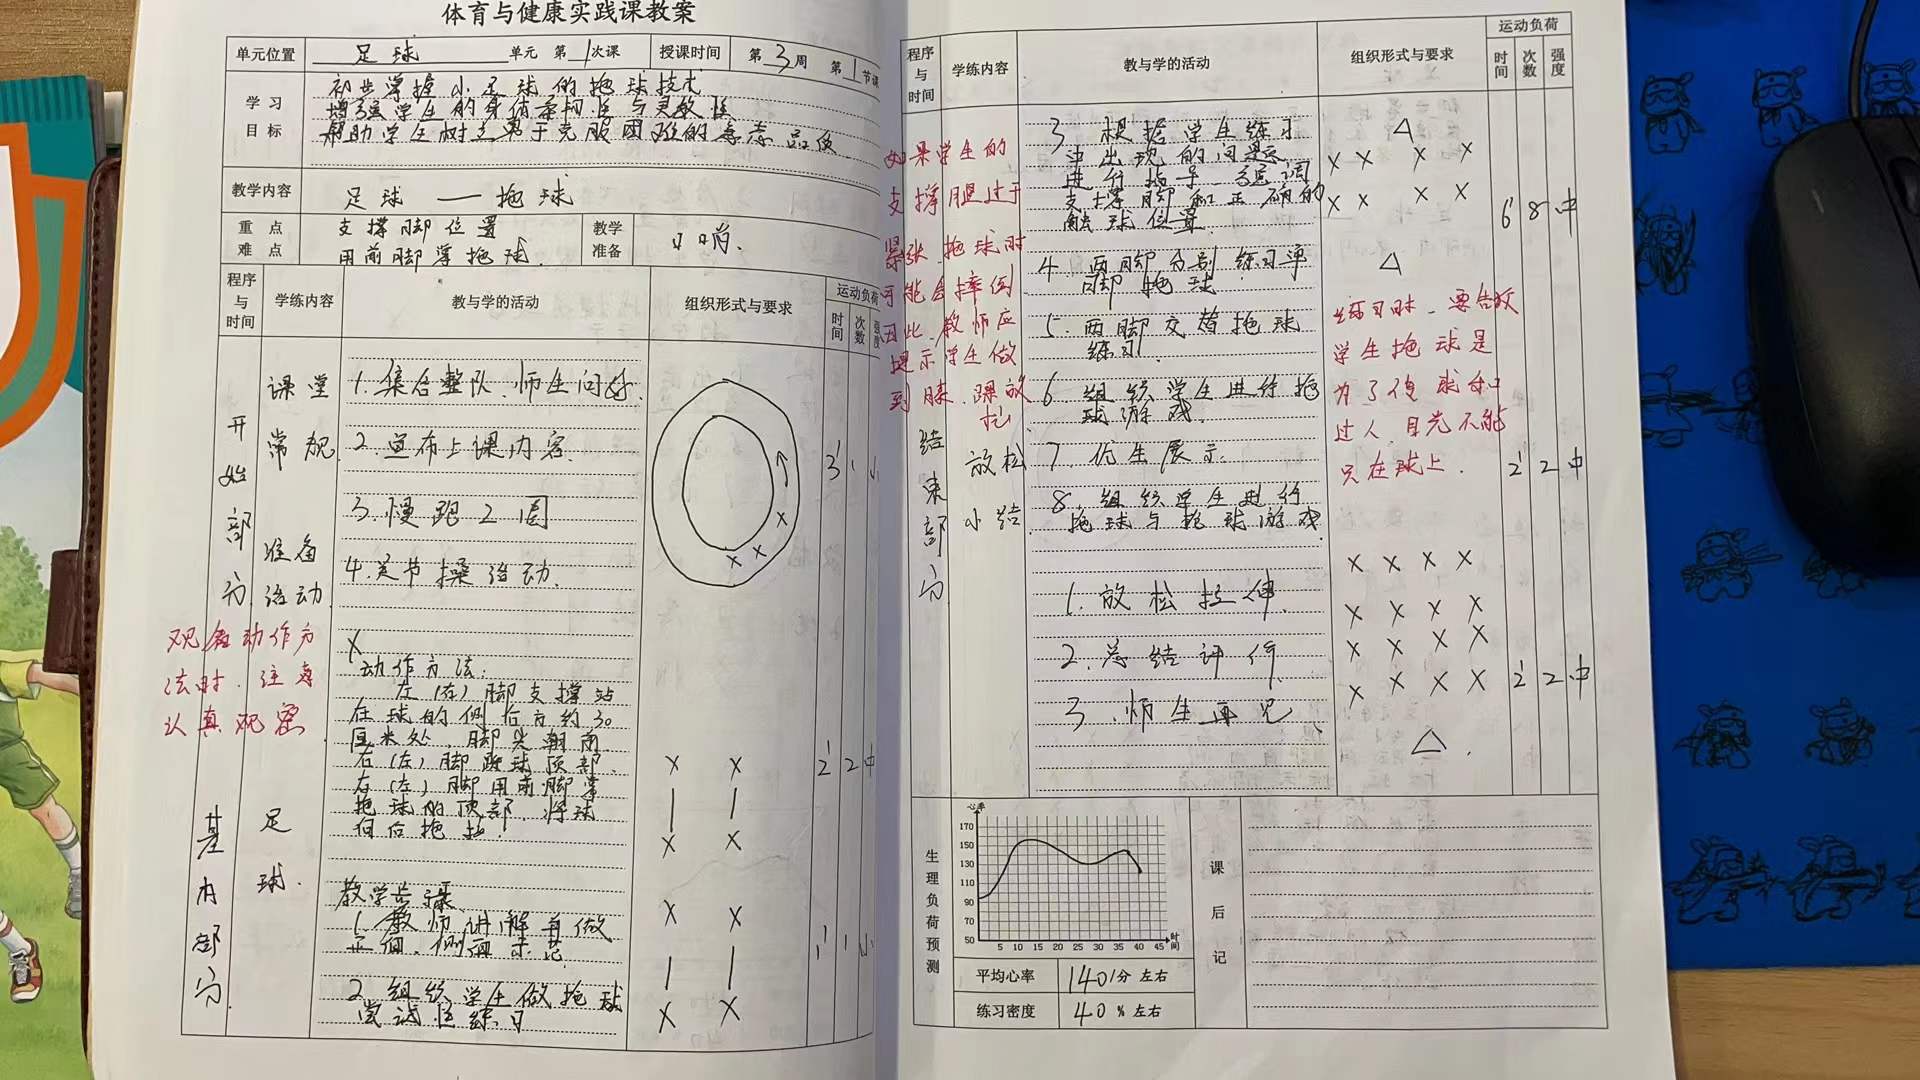 体育与健康实践课教案
单元位置 足球 单元 第 1 次课 授课时间 第 3 周 第 1 节课
学习目标
初步掌握小足球的拖球技术
增强学生的身体柔韧性与灵敏性
帮助学生树立勇于克服困难的意志品质
教学内容 足球——拖球
重点 支撑脚位置
难点 用前脚掌拖球.
教学准备 口哨.
程序与时间 学练内容 教与学的活动 组织形式与要求 运动负荷
时间 次数 强度
开始部分
课堂常规
准备活动
1.集合整队.师生问好.
2.宣布上课内容.
3.慢跑2周
4.关节操活动.
3' 1 小
观看动作方
法时.注意
认真观察
基本部分
足球.
动作方法:
左(右)脚支撑站
在球的侧后方约30
厘米处.脚尖朝前
右(左)脚踩球顶部.
右(左)脚用前脚掌
拖球的顶部.将球
向后拖拉.
2' 2 中
教学步骤
1.教师讲解并做
正面.侧面示范.
1' 1 小
2.组织学生做拖球
尝试性练习
程序与时间 学练内容 教与学的活动 组织形式与要求 运动负荷
时间 次数 强度
如果学生的
支撑腿过于
紧张.拖球时
可能会摔倒
因此.教师应
提示学生做
到膝.踝放
松.
3.根据学生练习
中出现的问题
进行指导.强调
支撑脚和正确的
触球位置.
6' 8 中
4.两脚分别练习单
脚拖球
5.两脚交替拖球
练习.
6.组织学生进行拖
球游戏.
7.优生展示.
8.组织学生进行
拖球与抢球游戏
练习时.要告故
学生拖球是
为了使球和
过人.目光不能
只在球上.
2' 2 中
结束部分
放松
小结
1.放松拉伸.
2.总结评价
3.师生再见
2' 2 中
生理负荷预测
心率
170
150
130
110
90
70
50
5 10 15 20 25 30 35 40 45 时间
平均心率 140 1/分 左右
练习密度 40 % 左右
课后记